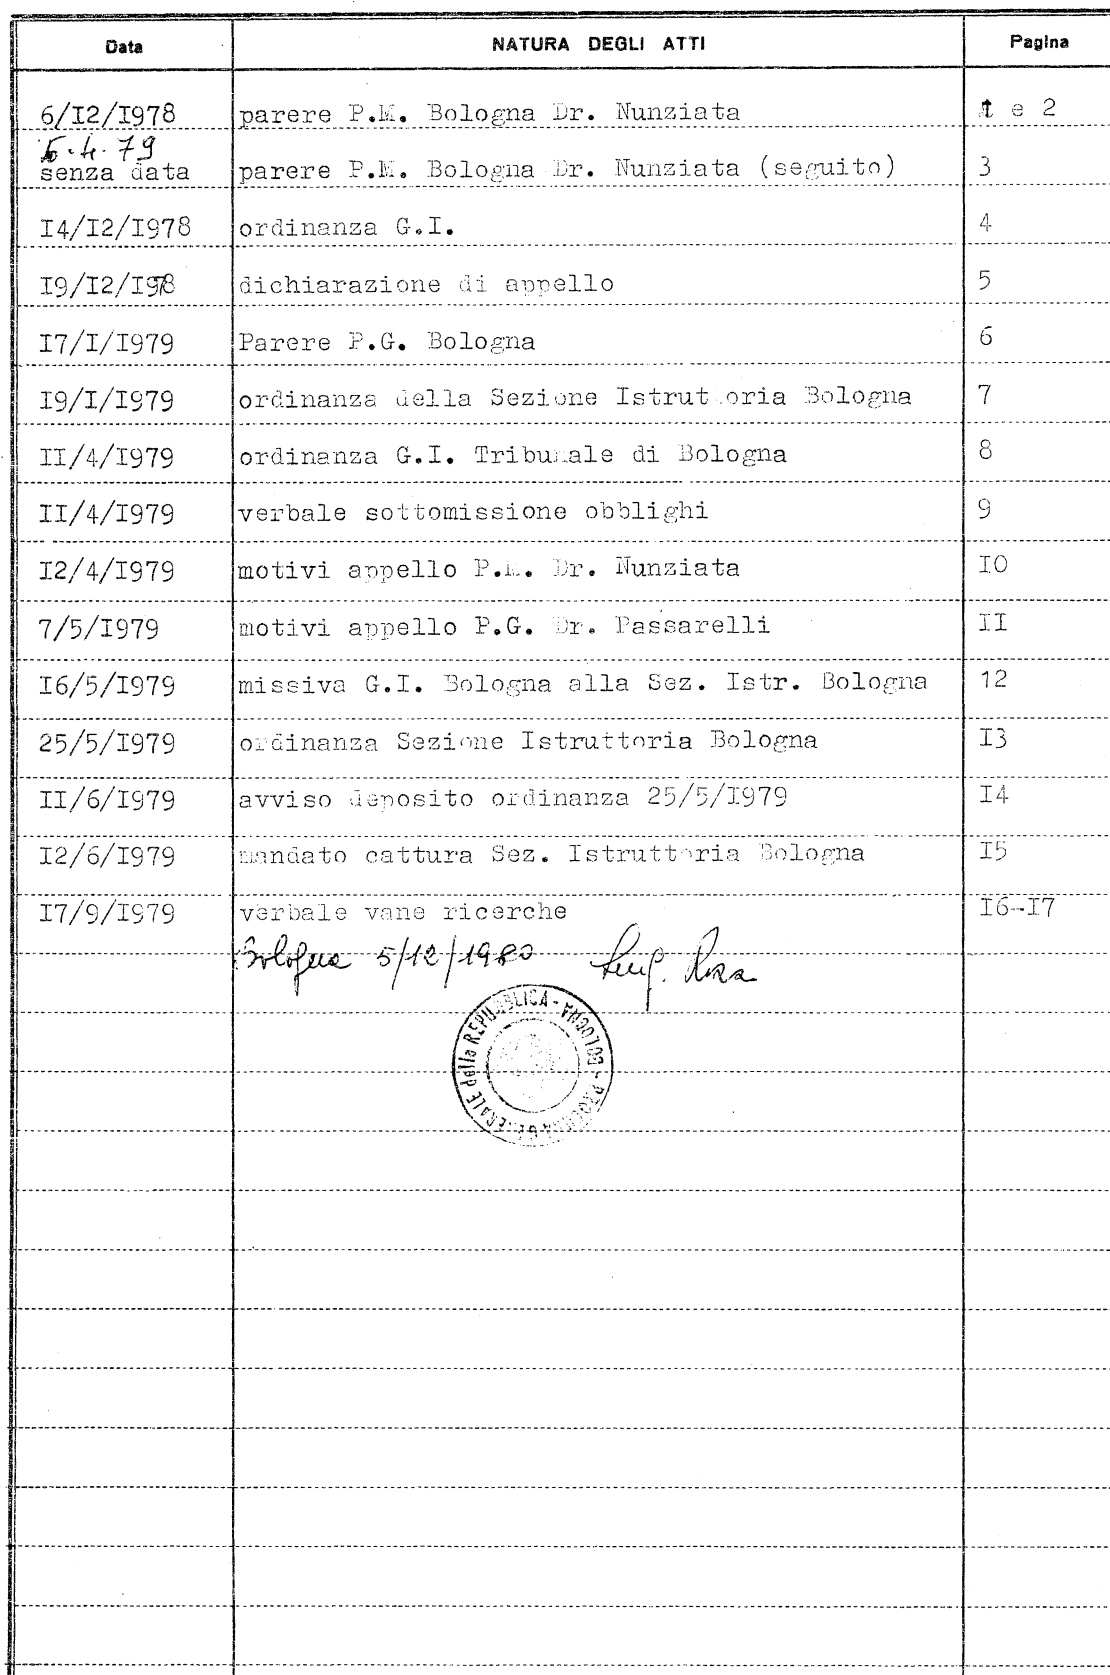 Data NATURA DEGLI ATTI Pagina
6/I2/I978 parere P.M. Bologna Dr. Nunziata 1 e 2
5.4.79
senza data parere P.M. Bologna Dr. Nunziata (seguito) 3
I4/I2/I978 ordinanza G.I. 4
I9/I2/I978 dichiarazione di appello 5
I7/I/I979 Parere P.G. Bologna 6
I9/I/I979 ordinanza della Sezione Istruttoria Bologna 7
II/4/I979 ordinanza G.I. Tribunale di Bologna 8
II/4/I979 verbale sottomissione obblighi 9
I2/4/I979 motivi appello P.M. Dr. Nunziata IO
7/5/I979 motivi appello P.G. Dr. Passarelli II
I6/5/I979 missiva G.I. Bologna alla Sez. Istr. Bologna 12
25/5/I979 ordinanza Sezione Istruttoria Bologna I3
II/6/I979 avviso deposito ordinanza 25/5/I979 I4
I2/6/I979 mandato cattura Sez. Istruttoria Bologna I5
I7/9/I979 verbale vane ricerche I6-I7
Bologna 5/12/1980
GENERALE della REPUBBLICA - BOLOGNA - PROCURA